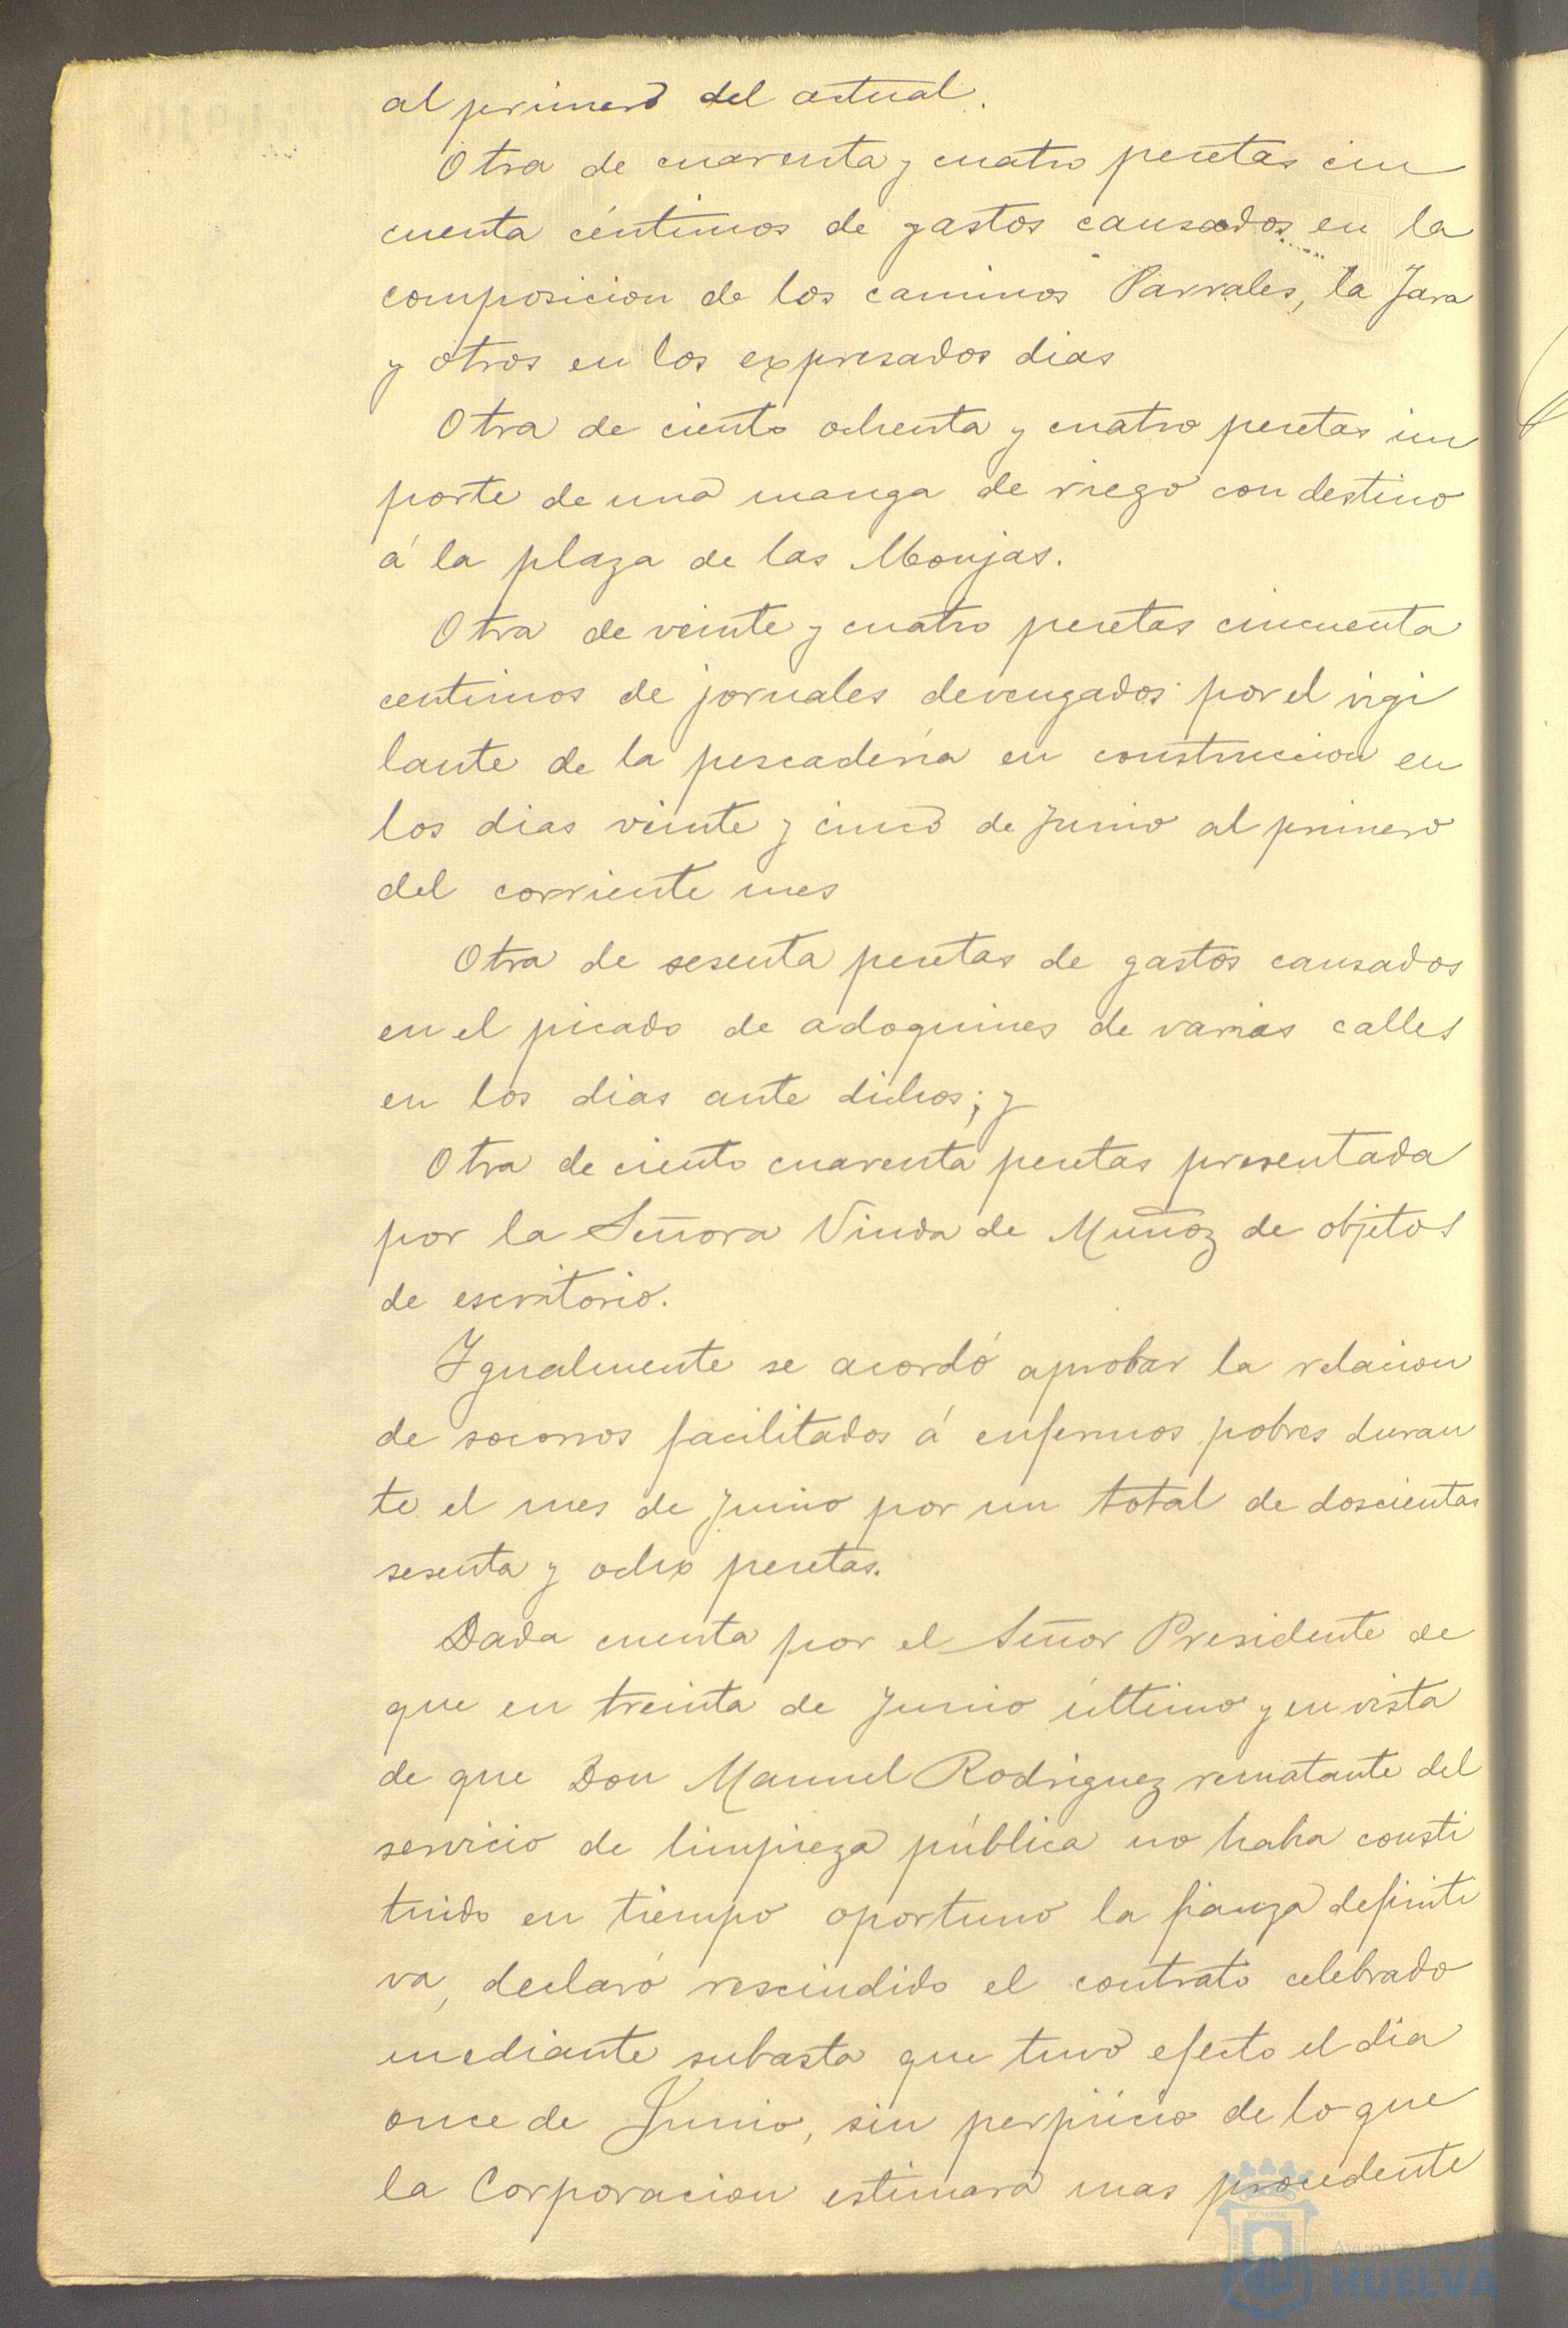 al primero del actual.
Otra de cuarenta y cuatro pesetas cin
cuenta céntimos de gastos causados en la
composicion de los caminos Parrales, la Jara
y otros en los expresados dias
Otra de ciento ochenta y cuatro pesetas im
porte de una manga de riego con destino
á la plaza de las Monjas.
Otra de veinte y cuatro pesetas cincuenta
centimos de jornales devengados por el vigi
lante de la pescadería en construccion en
los dias veinte y cinco de Junio al primero
del corriente mes
Otra de sesenta pesetas de gastos causados
en el picado de adoquines de varias calles
en los dias ante dichos; y
Otra de ciento cuarenta pesetas presentada
por la Señora Viuda de Muñoz de objetos
de escritorio.
Igualmente se acordó aprobar la relacion
de socorros facilitados á enfermos pobres duran
te el mes de Junio por un total de doscientas
sesenta y ocho pesetas.
Dada cuenta por el Señor Presidente de
que en treinta de Junio último y en vista
de que Don Manuel Rodriguez rematante del
servicio de limpieza pública no habia consti
tuido en tiempo oportuno la fianza definiti
va, declaró rescindido el contrato celebrado
mediante subasta que tuvo efecto el dia
once de Junio, sin perjuicio de lo que
la Corporacion estimara mas procedente
HUELVA